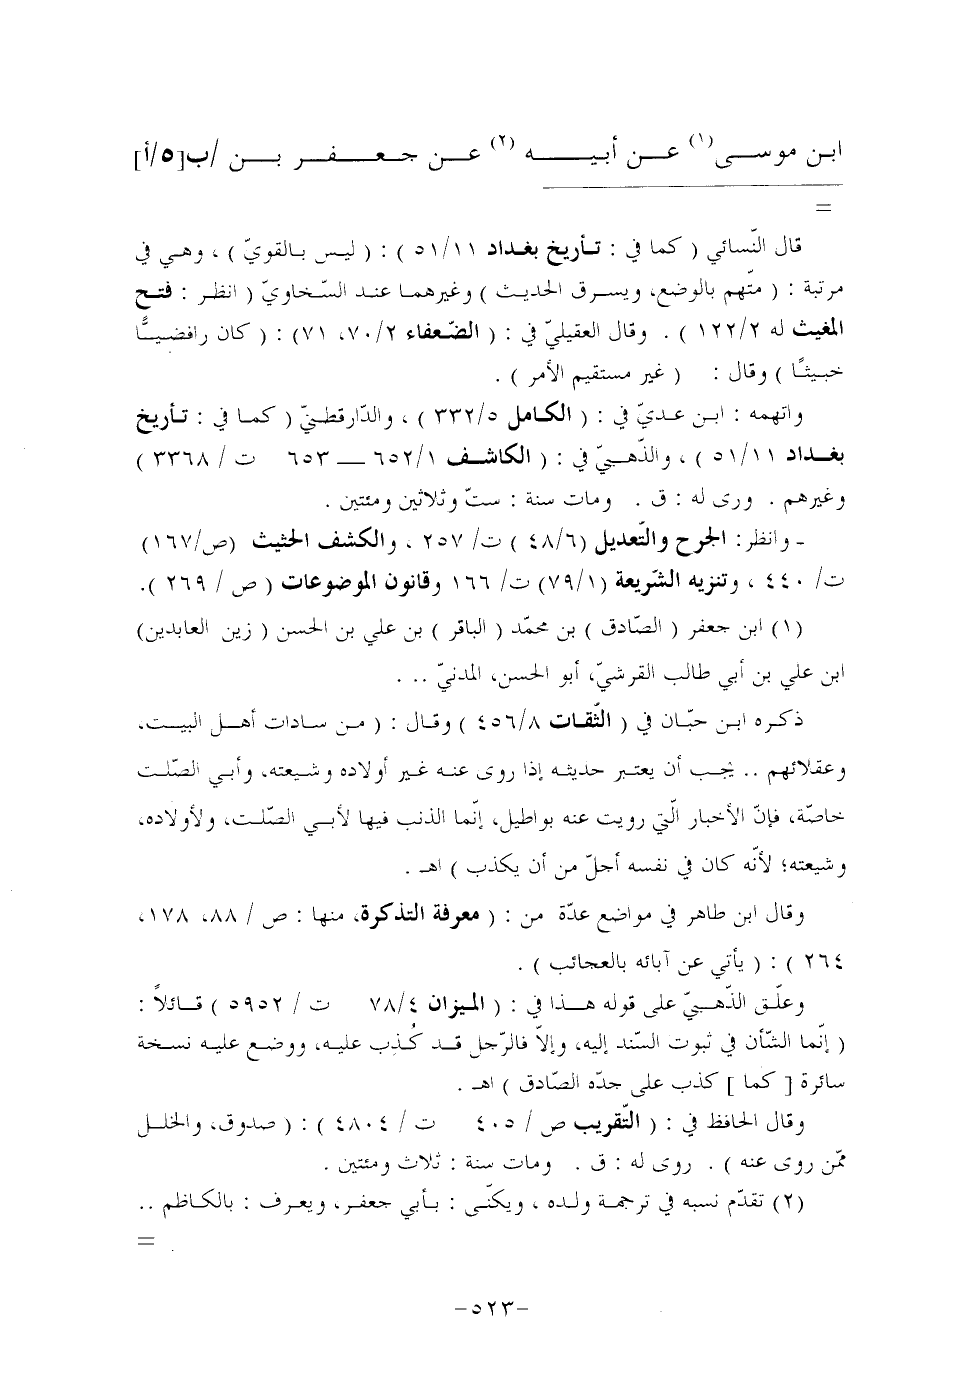 ابن موسى(١) عن أبيه (٢) عن جعفر بن /ب[٥/أ]
=
قال النّسائي ( كما في : تأريخ بغداد ٥١/١١ ) : ( ليس بالقويّ ) ، وهي في
مرتبة : ( متّهم بالوضع، ويسرق الحديث ) وغيرهما عند السّخاويّ ( انظر : فتح
المغيث له ١٢٢/٢ ) . وقال العقيليّ في : ( الضّعفاء ٧٠/٢، ٧١) : ( كان رافضيًّا
خبيثًا ) وقال : ( غير مستقيم الأمر ) .
واتهمه : ابن عديّ في : ( الكامل ٣٣٢/٥ ) ، والدّارقطنيّ ( كما في : تأريخ
بغداد ٥١/١١ ) ، والذّهبيّ في : ( الكاشف ٦٥٢/١ — ٦٥٣ ت / ٣٣٦٨ )
وغيرهم . ورى له : ق . ومات سنة : ستّ وثلاثين ومئتين .
- وانظر: الجرح والتّعديل (٤٨/٦ ) ت/ ٢٥٧ ، والكشف الحثيث (ص/١٦٧)
ت/ ٤٤٠ ، وتنزيه الشّريعة (٧٩/١) ت/ ١٦٦ وقانون الموضوعات ( ص / ٢٦٩ ).
(١) ابن جعفر ( الصّادق ) بن محمّد ( الباقر ) بن علي بن الحسن ( زين العابدين)
ابن علي بن أبي طالب القرشيّ، أبو الحسن، المدنيّ .. .
ذكره ابن حبّان في ( الثّقات ٤٥٦/٨ ) وقال : ( من سادات أهل البيت،
وعقلائهم .. يجب أن يعتبر حديثه إذا روى عنه غير أولاده وشيعته، وأبي الصّلت
خاصّة، فإنّ الأخبار الّتي رويت عنه بواطيل، إنّما الذنب فيها لأبي الصّلت، ولأولاده،
وشيعته؛ لأنّه كان في نفسه أجلّ من أن يكذب ) اهـ .
وقال ابن طاهر في مواضع عدّة من : ( معرفة التذكرة، منها : ص / ٨٨، ١٧٨،
٢٦٤ ) : ( يأتي عن آبائه بالعجائب ) .
وعلّق الذّهبيّ على قوله هذا في : ( الميزان ٧٨/٤ ت / ٥٩٥٢ ) قائلاً :
( إنّما الشّأن في ثبوت السّند إليه، وإلاّ فالرّجل قد كُذِب عليه، ووضع عليه نسخة
سائرة [ كما ] كذب على جدّه الصّادق ) اهـ .
وقال الحافظ في : ( التّقريب ص / ٤٠٥ ت / ٤٨٠٤ ) : ( صدوق، والخلل
ممّن روى عنه ) . روى له : ق . ومات سنة : ثلاث ومئتين .
(٢) تقدّم نسبه في ترجمة ولده ، ويكنّى : بأبي جعفر، ويعرف : بالكاظم ..
=
-٥٢٣-